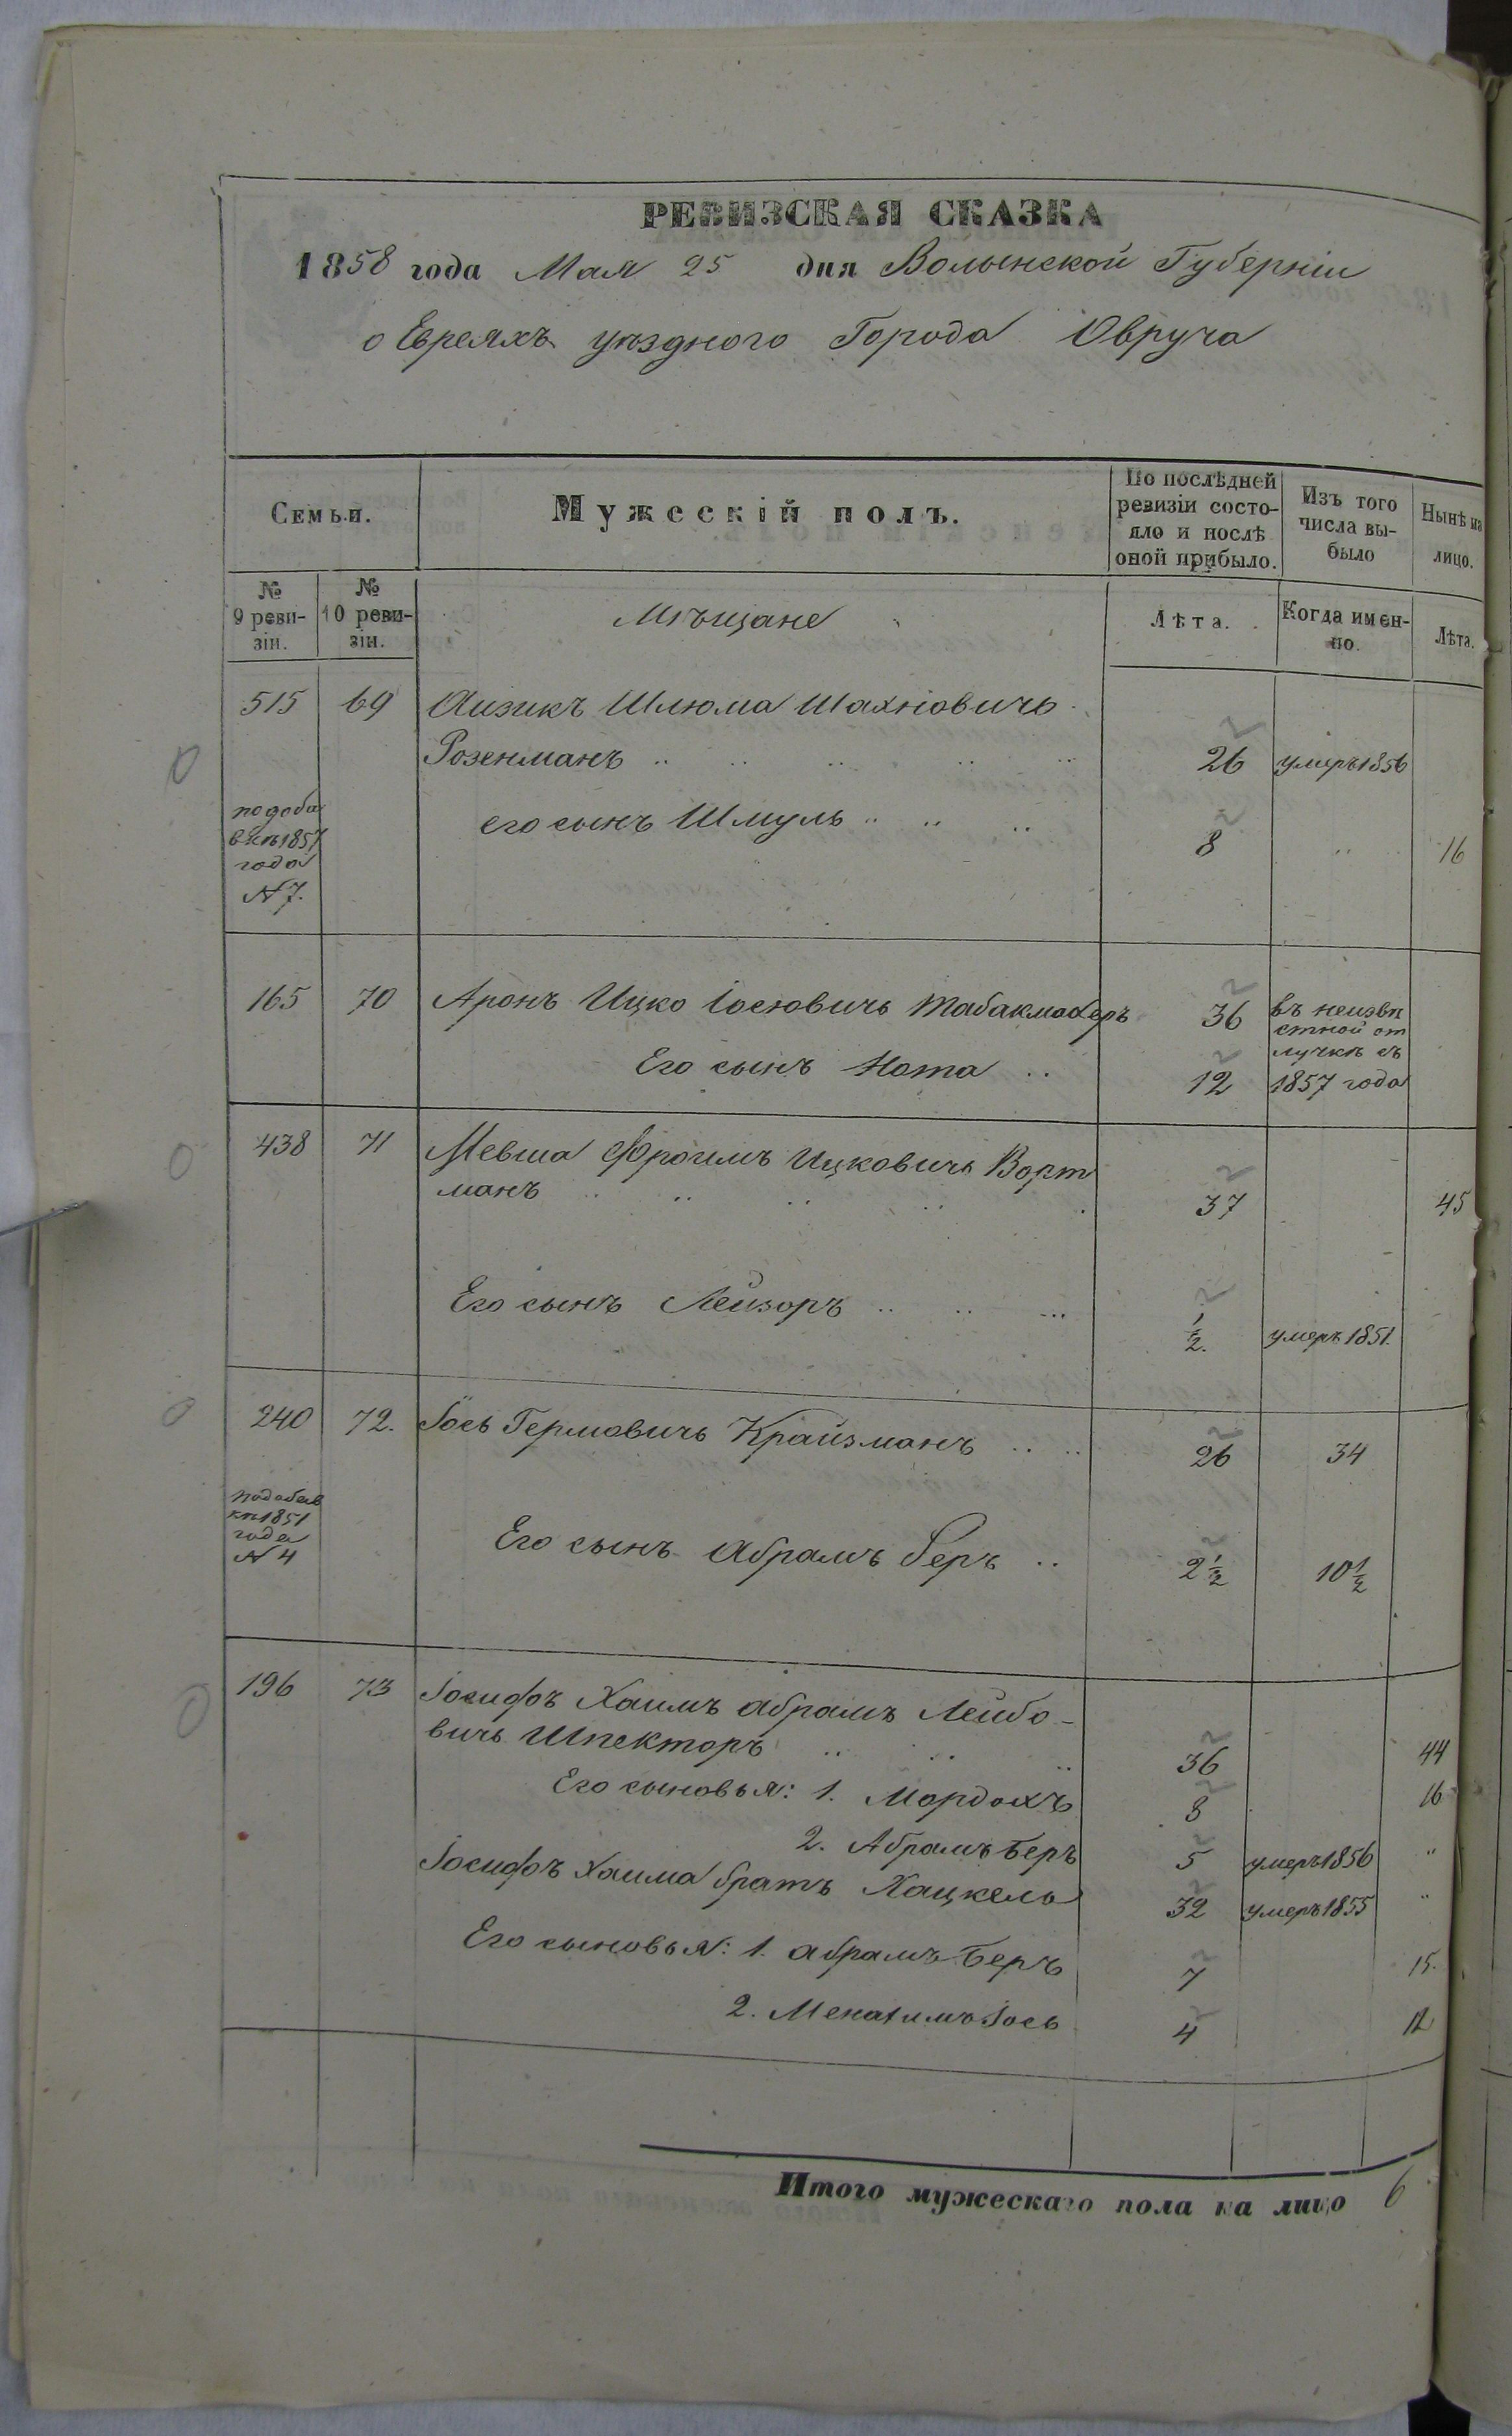 РЕВИЗСКАЯ СКАЗКА
1858 года Мая 25 дня Волынской Губерніи
о Евреяхъ уѣзднаго Города Овруча
Семьи. Мужескій полъ. По послѣдней ревизіи состояло и послѣ оной прибыло. Изъ того числа выбыло Нынѣ на лицо.
№ 9 ревизіи. № 10 ревизіи. Мѣщане Лѣта. Когда именно. Лѣта.
515 69 Аизикъ Шлюма Шахновичь
Розенманъ 26 умеръ 1856
его сынъ Шмуль 8 16
подоба
вкѣ 1857
года
N 7.
165 70 Аронъ Ицко Іосіовичь Табакмахеръ 36 въ неизвѣ
стной от
лучкѣ съ
Его сынъ Нота 12 1857 года
438 71 Мевша Фроимъ Ицковичь Ворт
манъ 37 45
Его сынъ Лейзоръ ½. умеръ 1851.
240 72. Іось Гермовичь Крайзманъ 26 34
подобав
кѣ 1851
года
N 4
Его сынъ Абрамъ Беръ 2½ 10½
196 73 Іосифъ Хаимъ Абрамъ Лейбо-
вичь Шпекторъ 36 44
Его сыновья: 1. Мордохъ 8 16
2. Абрамъ Беръ 5 умеръ 1856 "
Іосифъ Хаима братъ Хацкель 32 умеръ 1855 "
Его сыновья: 1. Абрамъ Беръ 7 15.
2. Менахимъ Іось 4 12
Итого мужескаго пола на лицо 6